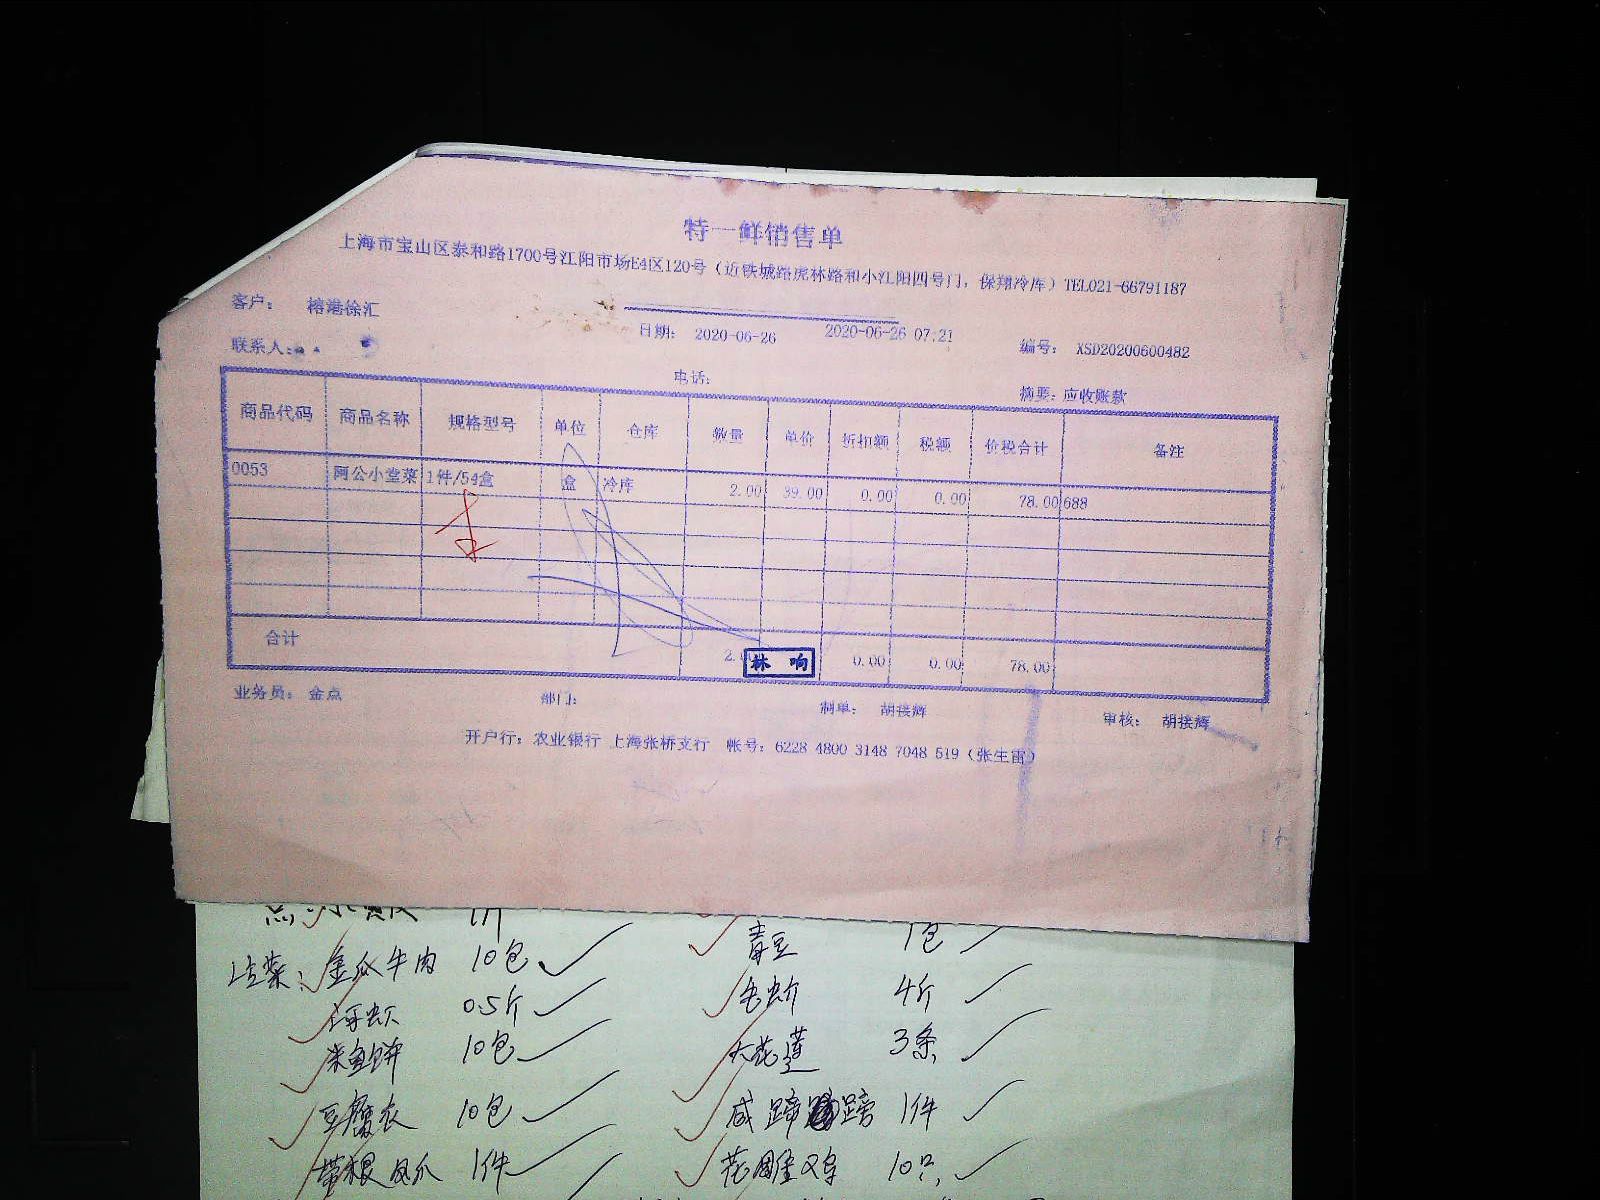 特一鲜销售单
上海市宝山区泰和路1700号江阳市场E4区120号（近铁城路虎林路和小江阳四号门，保翔冷库）TEL021-66791187
客户： 榕港徐汇
日期： 2020-06-26 2020-06-26 07:21
编号： XSD20200600482
联系人：
电话：
摘要：应收账款
商品代码 商品名称 规格型号 单位 仓库 数量 单价 折扣额 税额 价税合计 备注
0053 阿公小堂菜 1件/54盒 盒 冷库 2.00 39.00 0.00 0.00 78.00 688
合计 2. 0.00 0.00 78.00
林响
业务员： 金点 部门： 制单： 胡接辉 审核： 胡接辉
开户行：农业银行 上海张桥支行 帐号：6228 4800 3148 7048 519（张生雷）
金瓜牛肉 10包 青豆 1包
0.5斤 4斤
米鱼饼 10包 大花莲 3条
豆腐衣 10包 咸蹄 蹄 1件
带根凤爪 1件 花雕又鸟 10只